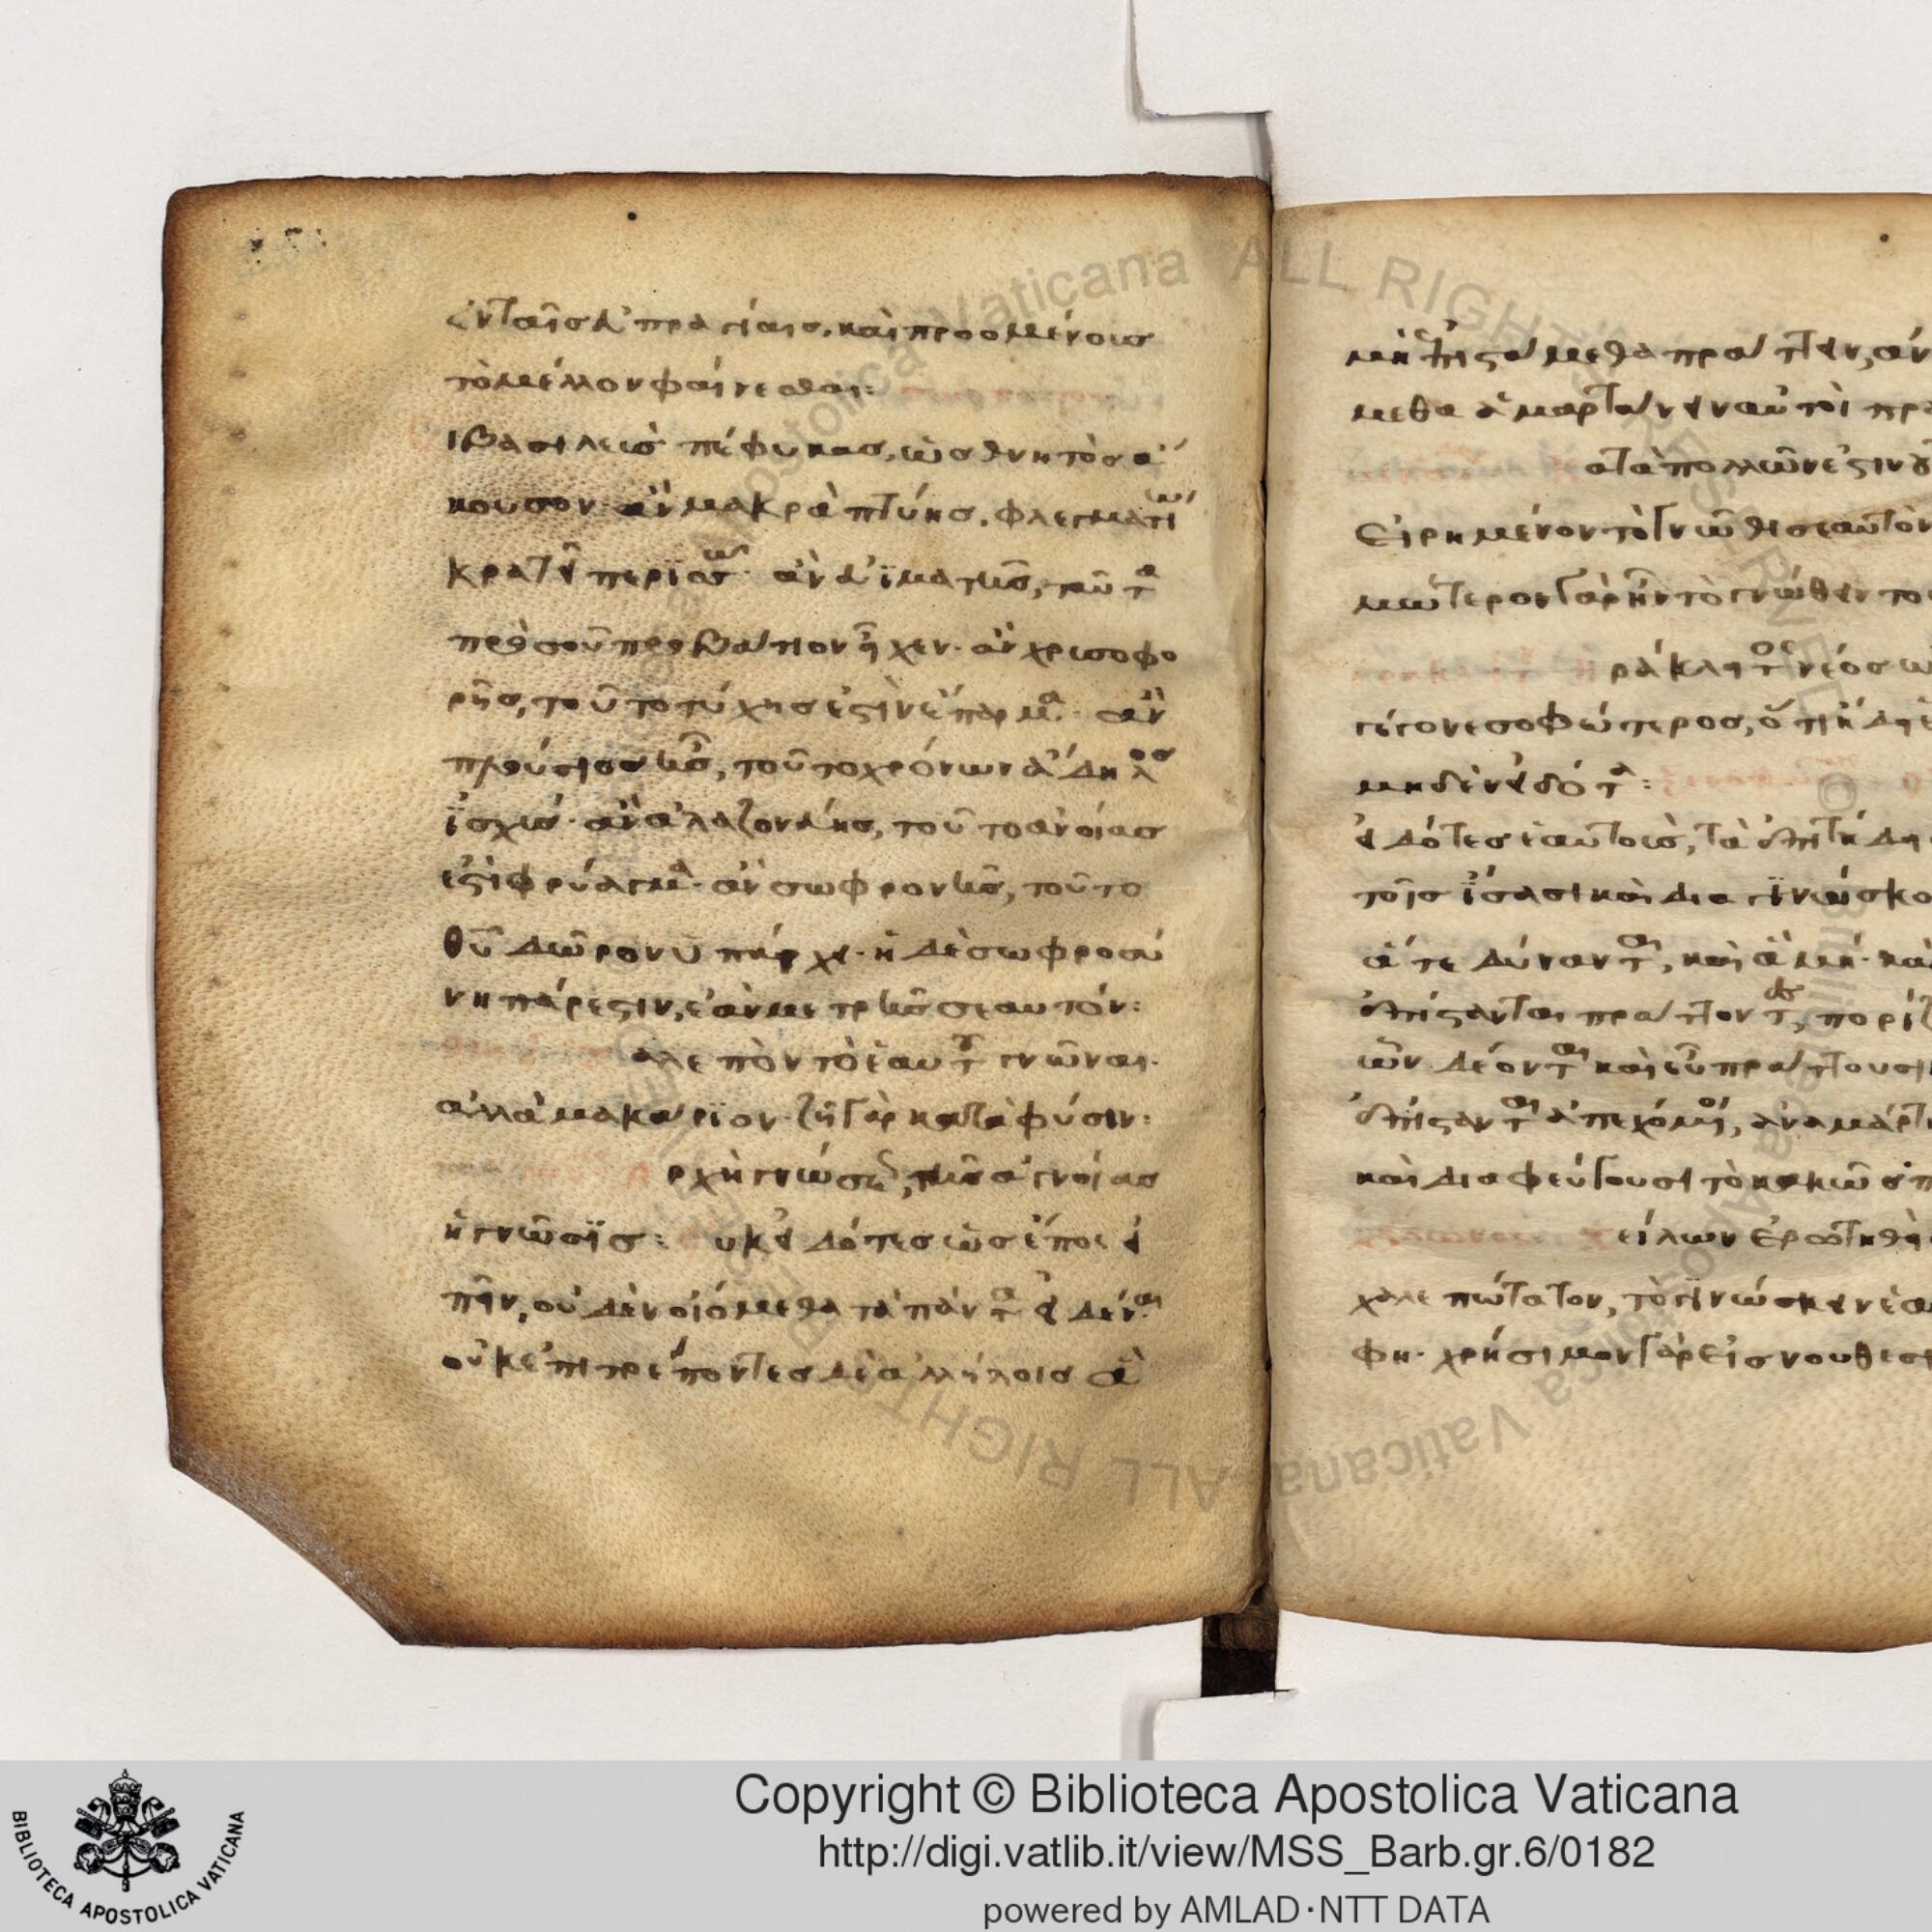 ἐν ταῖς ἀπραγίαις. καὶ προσμένοις
τὸ μέλλον φαίνεσθαι:
ι βασιλεὺς πέφυκας, ὡς θνητὸς ἄ
κουσον· ἂν μακρὰ πτύης, φλεγμάτων
κρατῆ περισσῶς· ἂν εἱματῆς, ταῦτα
πρὸ σοῦ προβάτιον εἶχεν· ἂν χρυσοφο
ρῆς, τοῦτο τύχης ἐστὶν ἔπαρμα· ἂν
πλούσιος ἧς, τοῦτο χρόνων ἄδηλος
ἰσχύς· ἂν ἀλαζονεύης, τοῦτο ἀνοίας
ἐστὶ φρύαγμα· ἂν σωφρονῆς, τοῦτο
θῦ δῶρον ὑπάρχει· ἡ δὲ σωφροσύ
νη πάρεστιν, ἐὰν μετρῆς σεαυτόν:
αλεπὸν τὸ ἑαυτὸν γνῶναι·
ἀλλὰ μακάριον· ζῆ γὰρ κατὰ φύσιν:
ρχὴ γνώσεως, τῆς ἀγνοίας
ἡ γνῶσις: υκ εἰδότες ὡς ἔπος εἰ
πεῖν, οὐδὲν οἰόμεθα τὰ πάντα εἰδέναι
οὐκ ἐπιτρέποντες δὲ ἀλλήλοις ἃ
μὴ ἐπιστάμεθα πράττειν, ἁν
μεθα ἁμαρτάνειν αὐτοὶ πρα
ατὰ πολλῶν ἐστιν οὐ
Εἰρημένον τὸ γνῶθι σεαυτὸν
μώτερον γὰρ ἦν τὸ γνώθειν του
ράκλητος νέος ὢ
γέγονε σοφώτερος, ὅτι ἤδει
μηδὲν εἰδότα:
εἰδότες ἑαυτοὺς, τὰ ἐπιτήδει
τοῖς ἴσασι καὶ διαγινώσκο
ἅ τε δύνανται, καὶ ἃ μή· καὶ
ἐπίστανται πράττοντες, πορίζ
ὧν δέονται καὶ εὖ πράττουσι
ἐπίστανται ἀπεχόμενοι, ἀναμάρτη
καὶ διαφεύγουσι τὸ κακῶς π
είλων ἐρωτηθεὶ
χαλεπώτατον, τὸ γινώσκειν ἑα
φη· χρήσιμον γὰρ εἰς νουθεσί
Copyright © Biblioteca Apostolica Vaticana
http://digi.vatlib.it/view/MSS_Barb.gr.6/0182
powered by AMLAD·NTT DATA
BIBLIOTECA APOSTOLICA VATICANA